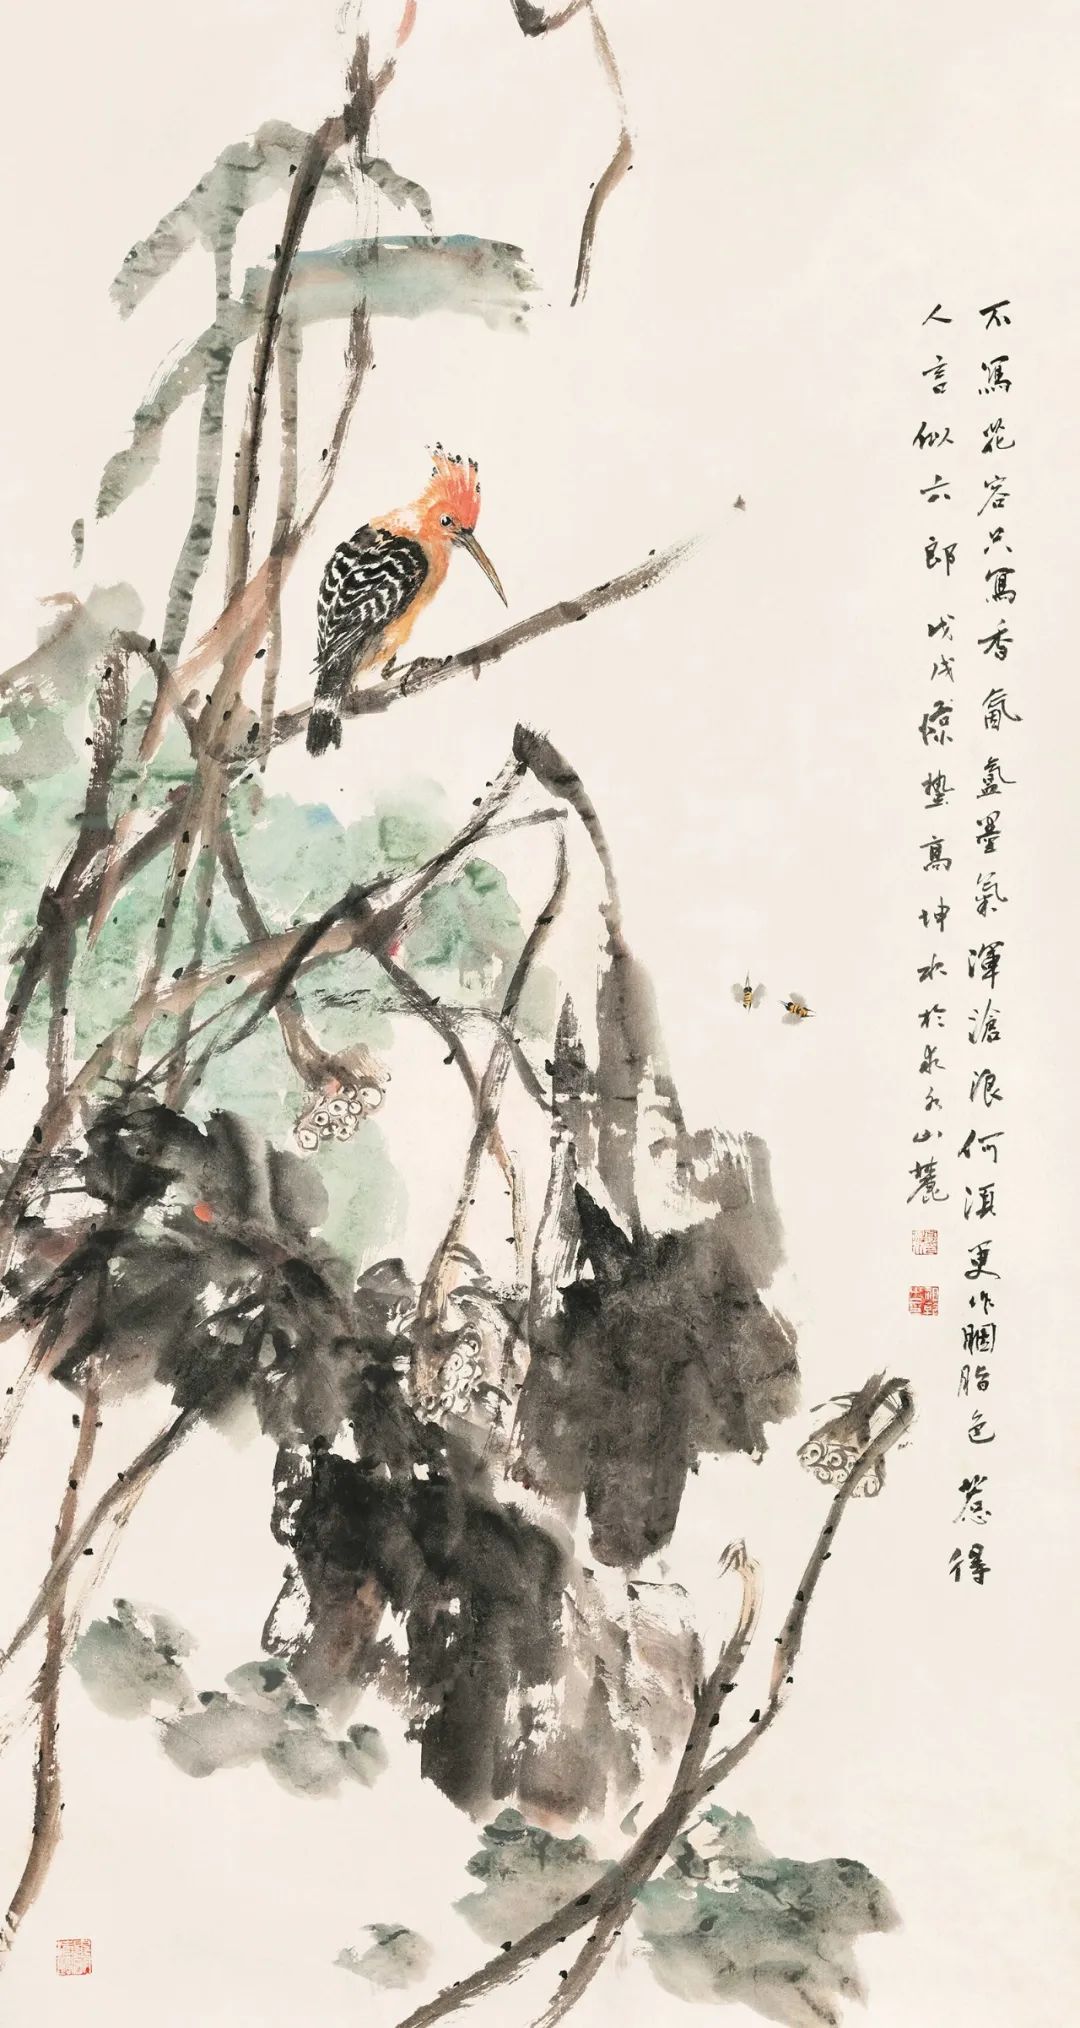 不寫花容只寫香氤氳墨氣渾滄浪何須更作胭脂色惹得
人言似六郎戊戌驚蟄高坤水於泉水山麓